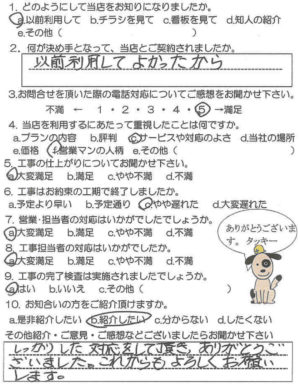 1. どのようにして当店をお知りになりましたか。
a.以前利用して b.チラシを見て c.看板を見て d.知人の紹介
e.その他（ ）
2. 何が決め手となって、当店とご契約されましたか。
以前利用してよかったから
3.お問合せを頂いた際の電話対応についてご感想をお聞かせ下さい。
不満 ← 1・2・3・4・5 →満足
4. 当店を利用するにあたって重視したことは何ですか。
a.プランの内容 b.評判 c.サービスや対応のよさ d.当社の場所
e.価格 f.営業マンの人柄 e.その他（ ）
5. 工事の仕上がりについてお聞かせ下さい。
a.大変満足 b.満足 c.やや不満 d.不満
6. 工事はお約束の工期で終了しましたか。
a.予定より早い b.予定通り c.やや遅れた d.大変遅れた
7. 営業・担当者の対応はいかがでしたでしょうか。
a.大変満足 b.満足 c.やや不満 d.不満
8. 工事担当者の対応はいかがでしたか。
a.大変満足 b.満足 c.やや不満 d.不満
ありがとうございま
す。タッキー
9. 工事の完了検査は実施されましたでしょうか。
a.はい b.いいえ c.その他（ ）
10. お知合いの方をご紹介頂けますか。
a.是非紹介したい b.紹介したい c.分からない d.したくない
その他紹介・ご意見・ご感想などございましたらお聞かせ下さい
しっかりした対応をして頂き、ありがとうご
ざいました。これからもよろしくお願い
します。